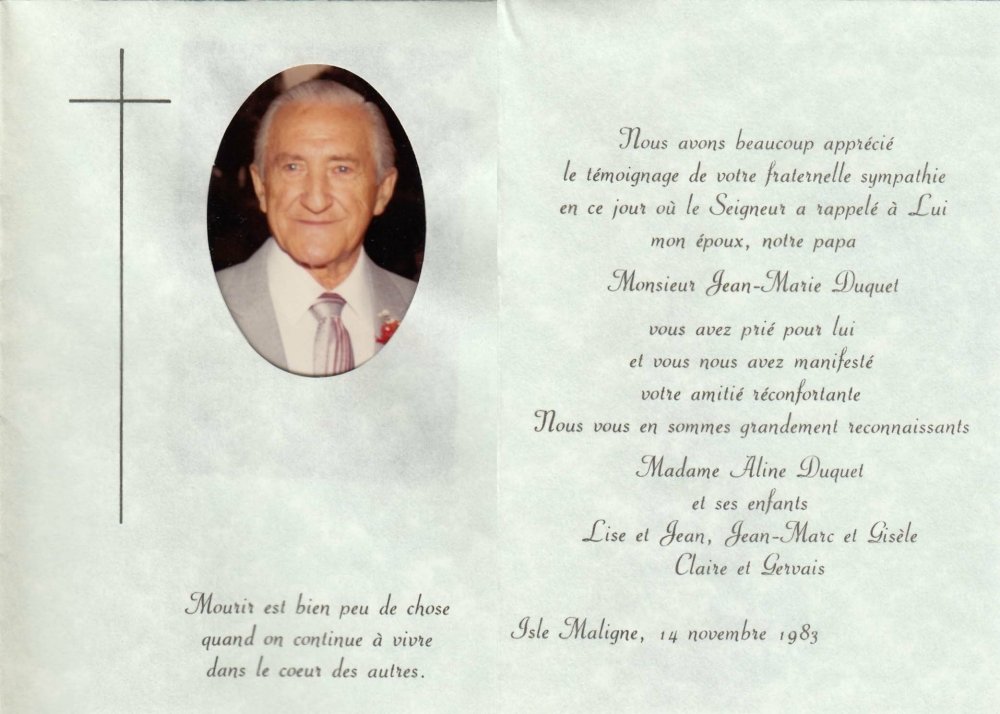 Mourir est bien peu de chose
quand on continue à vivre
dans le coeur des autres.
Nous avons beaucoup apprécié
le témoignage de votre fraternelle sympathie
en ce jour où le Seigneur a rappelé à Lui
mon époux, notre papa
Monsieur Jean-Marie Duquet
vous avez prié pour lui
et vous nous avez manifesté
votre amitié réconfortante
Nous vous en sommes grandement reconnaissants
Madame Aline Duquet
et ses enfants
Lise et Jean, Jean-Marc et Gisèle
Claire et Gervais
Isle Maligne, 14 novembre 1983